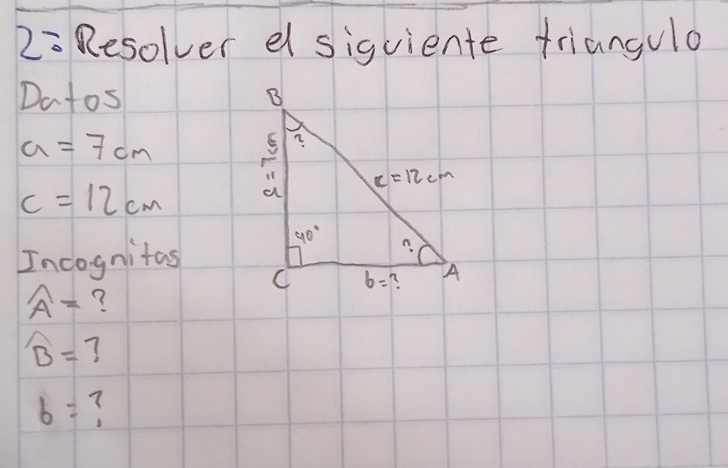 2= Resolver el siguiente triangulo
Datos
a = 7cm
c = 12cm
Incognitas
Â = ?
B̂ = ?
b = ?
B
?
a = 7cm
c = 12cm
90°
?
C
b = ?
A